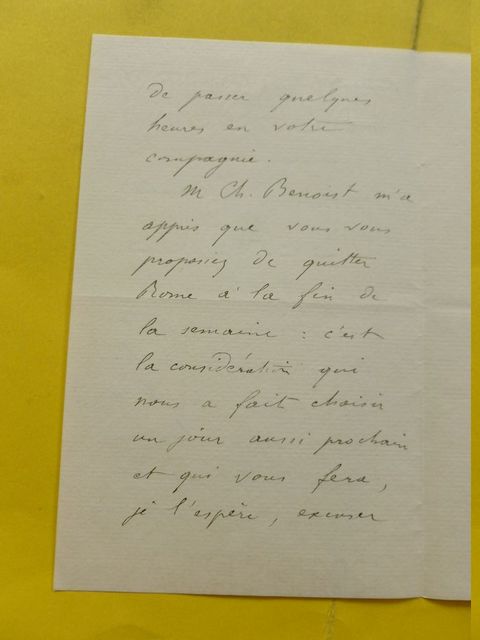 de passer quelques
heures en votre
compagnie.
M Ch. Benoist m'a
appris que vous vous
proposiez de quitter
Rome à la fin de
la semaine : c'est
la considération qui
nous a fait choisir
un jour aussi prochain
et qui vous fera,
je l'espère, excuser